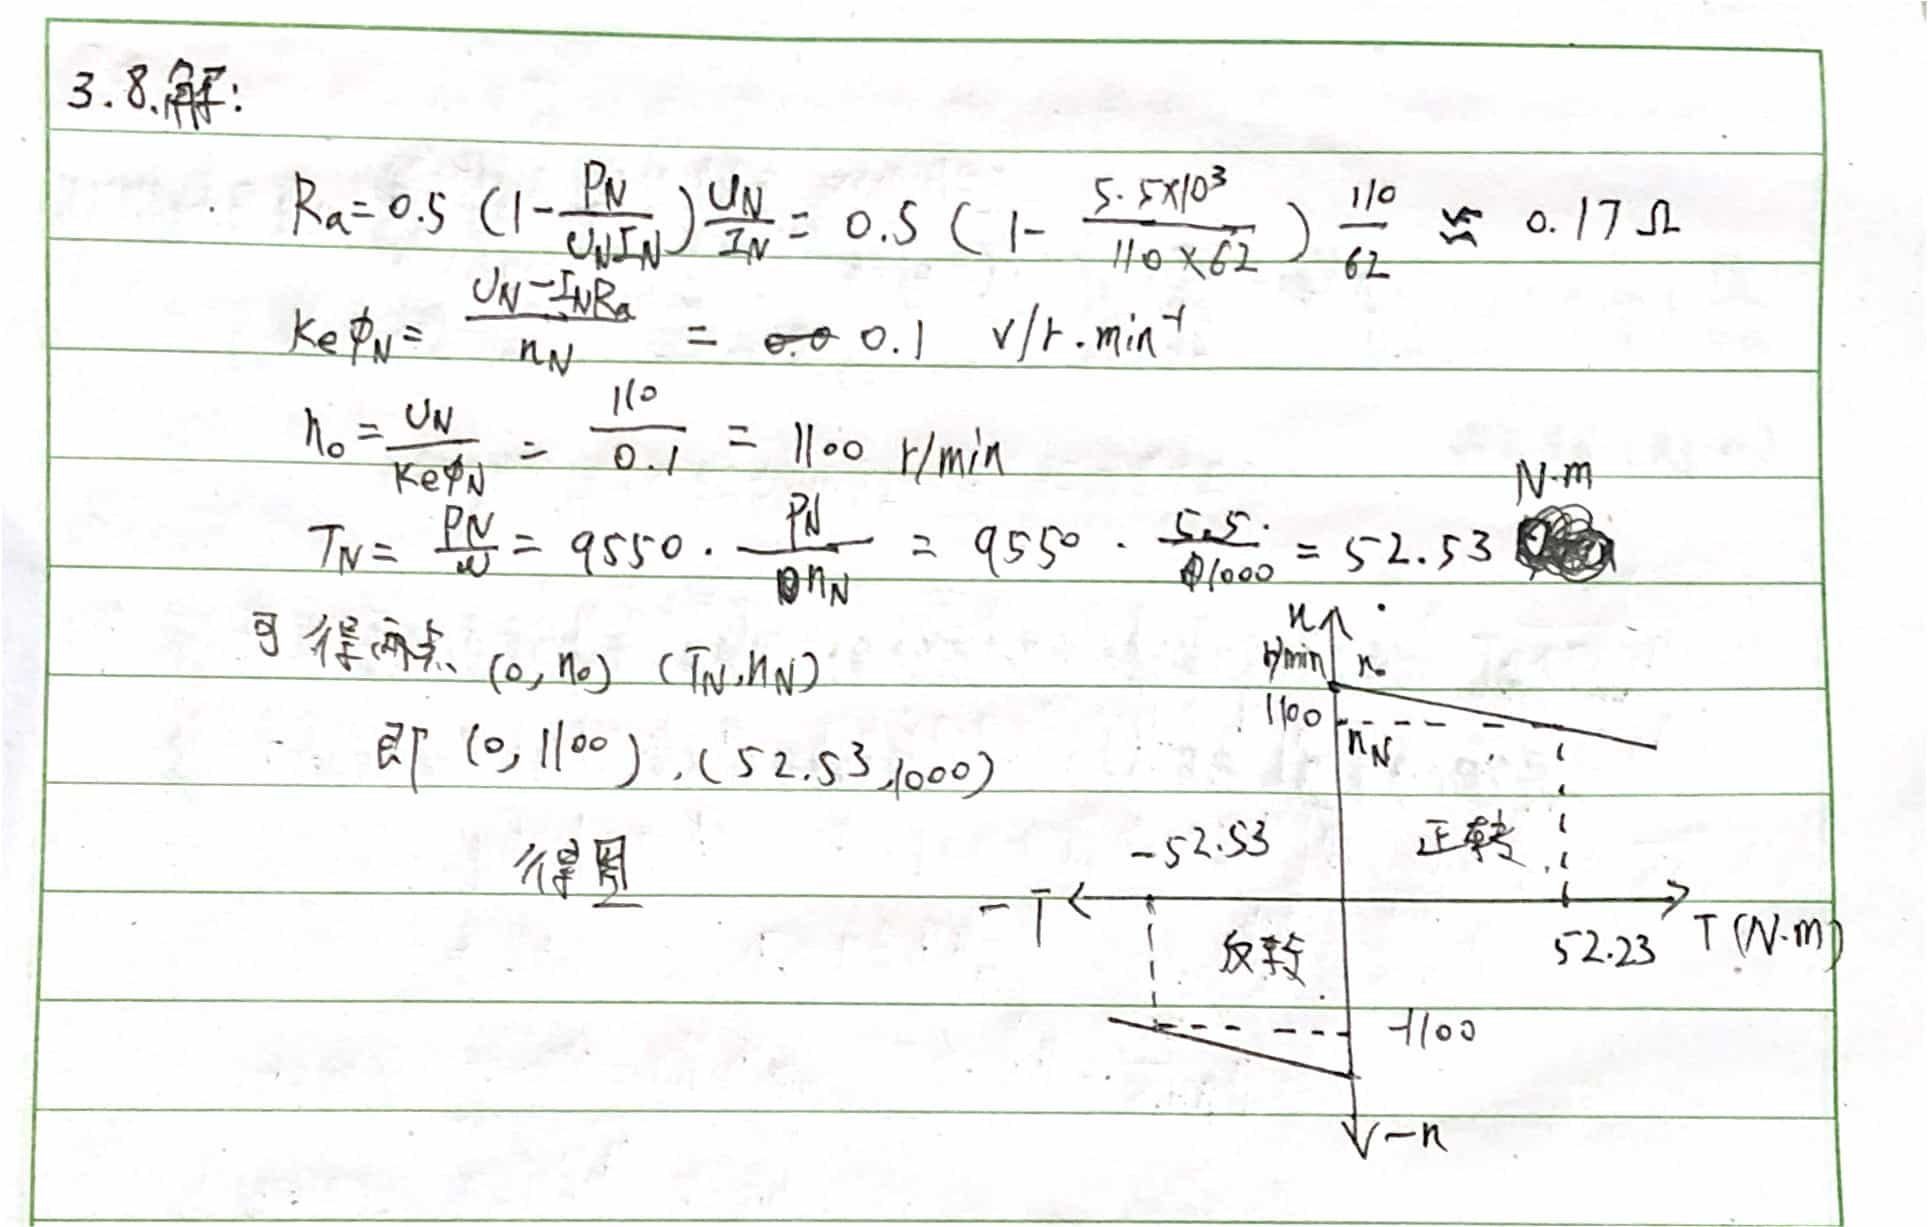 3.8.解:
Ra=0.5 (1-PN/UNIN)UN/IN = 0.5 (1-5.5×10³/110×62) 110/62 ≈ 0.17Ω
KeφN= UN-INRa/nN = 0.1 V/r.min⁻¹
n₀=UN/KeφN = 110/0.1 = 1100 r/min
TN= PN/w = 9550 · PN/nN = 9550 · 5.5/1000 = 52.53 N·m
可得两点 (0, n₀) (TN, nN)
即 (0, 1100), (52.53, 1000)
得图
n
r/min n₀
1100 nN
-52.53 正转
-T 反转 52.23 T (N·m)
-1100
-n